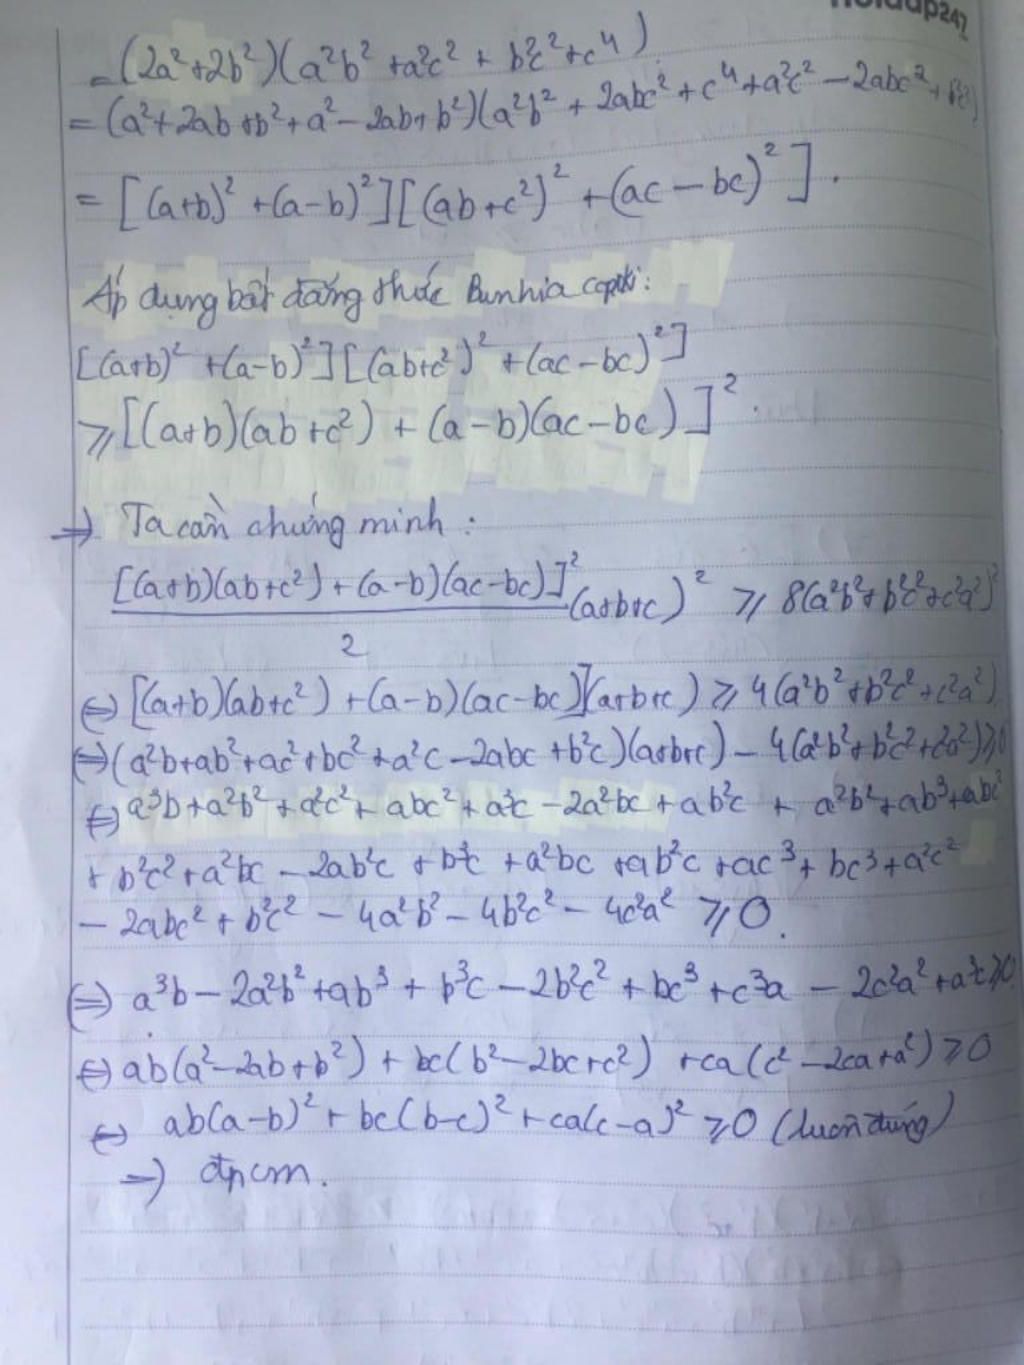 hoidap247
= (2a²+2b²)(a²b² + a²c² + b²c² + c⁴)
= (a²+2ab+b²+a²-2ab+b²)(a²b² + 2abc² + c⁴ + a²c² - 2abc² + b²c²)
= [(a+b)² + (a-b)²][(ab+c²)² + (ac-bc)²].
Áp dụng bất đẳng thức Bunhiacopxki:
[(a+b)² + (a-b)²][(ab+c²)² + (ac-bc)²]
⩾ [(a+b)(ab+c²) + (a-b)(ac-bc)]².
⇒ Ta cần chứng minh :
[(a+b)(ab+c²) + (a-b)(ac-bc)]²/2 (a+b+c)² ⩾ 8(a²b²+b²c²+c²a²)²
⇔ [(a+b)(ab+c²) + (a-b)(ac-bc)](a+b+c) ⩾ 4(a²b²+b²c²+c²a²)
⇔ (a²b+ab²+ac²+bc²+a²c-2abc+b²c)(a+b+c) - 4(a²b²+b²c²+c²a²) ⩾ 0
⇔ a³b+a²b²+a²c²+abc²+a³c-2a²bc+ab²c + a²b²+ab³+abc²
+ b²c²+a²bc-2ab²c+b³c+a²bc+ab²c+ac³+bc³+a²c²
- 2abc²+b²c²-4a²b²-4b²c²-4c²a² ⩾ 0.
⇔ a³b-2a²b²+ab³+b³c-2b²c²+bc³+c³a-2c²a²+a³c ⩾ 0.
⇔ ab(a²-2ab+b²) + bc(b²-2bc+c²) + ca(c²-2ca+a²) ⩾ 0
⇔ ab(a-b)² + bc(b-c)² + ca(c-a)² ⩾ 0 (luôn đúng)
⇒ đpcm.